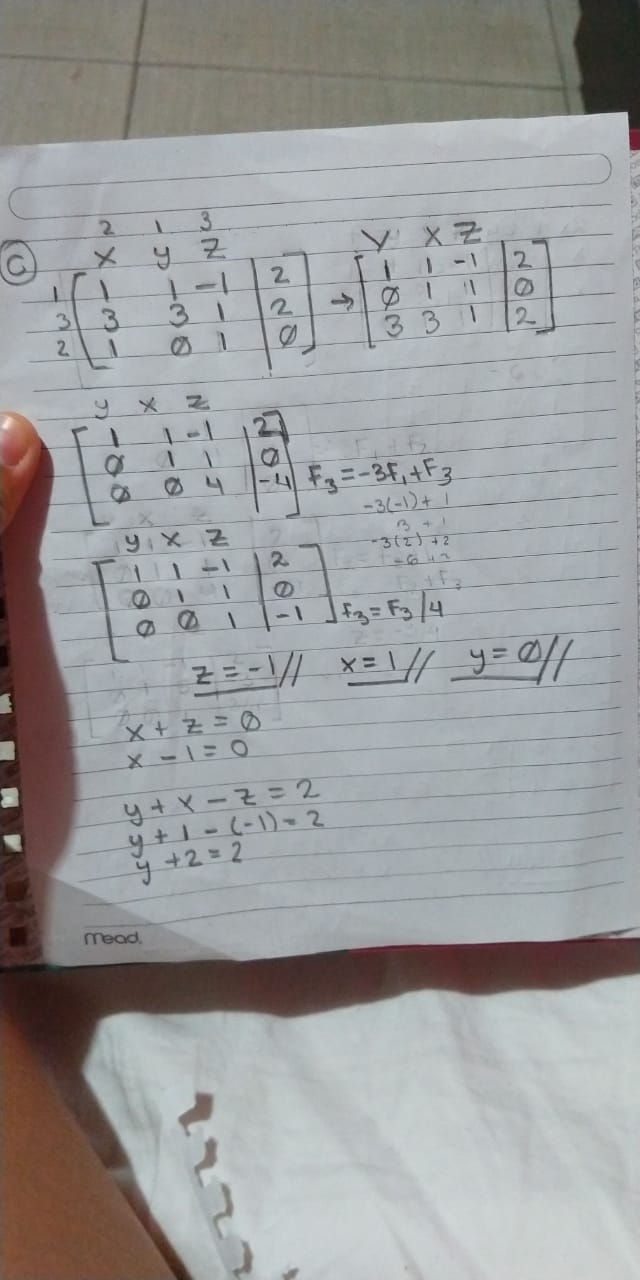 2 1 3
a x y z
1 [ 1 1 -1 | 2 ]
3 [ 3 3 1 | 2 ]
2 [ 1 0 1 | 0 ]
→
y x z
[ 1 1 -1 | 2 ]
[ 0 1 1 | 0 ]
[ 3 3 1 | 2 ]
y x z
[ 1 1 -1 | 2 ]
[ 0 1 1 | 0 ]
[ 0 0 4 | -4 ] F3 = -3F1 + F3
-3(-1) + 1
3 + 1
-3(2) + 2
-6 + 2
y x z
[ 1 1 -1 | 2 ]
[ 0 1 1 | 0 ]
[ 0 0 1 | -1 ] F3 = F3 / 4
z = -1// x = 1// y = 0//
x + z = 0
x - 1 = 0
y + x - z = 2
y + 1 - (-1) = 2
y + 2 = 2
mead.